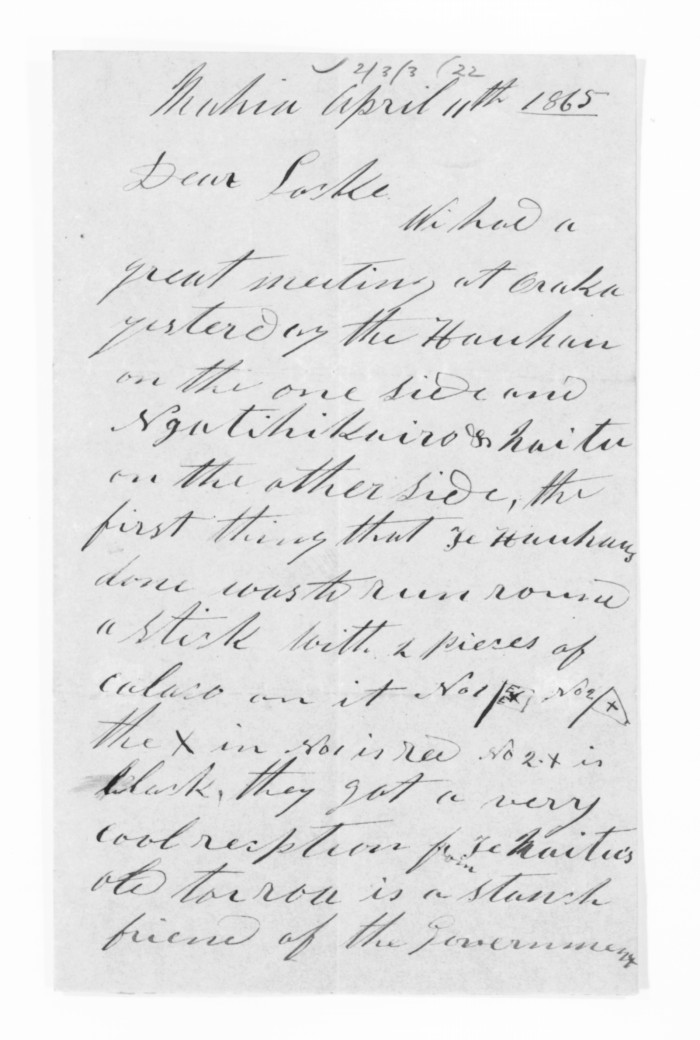 2/3/3 (22
Mahia April 11th 1865
Dear Locke
We had a
great meeting at Oraka
yesterday the Hauhau
on the one side and
Ngatihikairo & haitu
on the other side, the
first thing that Te Hauhaus
done was to run round
a stick with 2 pieces of
calaco on it No 1 X No 2 +
the X in No 1 is red No 2 + is
black, they got a very
cool reception from Te haitus
old toiroa is a stanch
friend of the Government